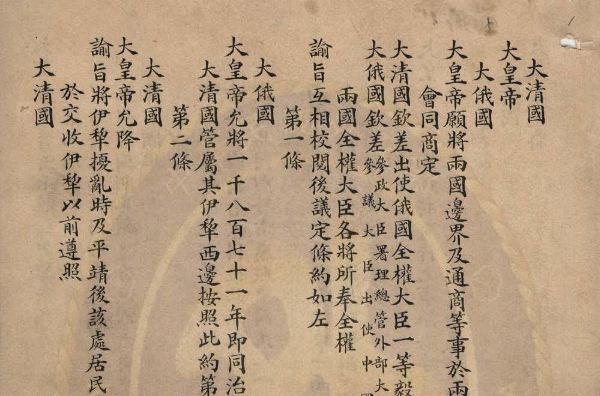 大清國
大皇帝
大俄國
大皇帝願將兩國邊界及通商等事於兩
會同商定
大清國欽差出使俄國全權大臣一等毅
大俄國欽差參政大臣署理總管外部大
參議大臣出使中國
兩國全權大臣各將所奉全權
諭旨互相校閱後議定條約如左
第一條
大俄國
大皇帝允將一千八百七十一年即同治
大清國管屬其伊犂西邊按照此約第
第二條
大清國
大皇帝允降
諭旨將伊犂擾亂時及平靖後該處居民
於交收伊犂以前遵照
大清國